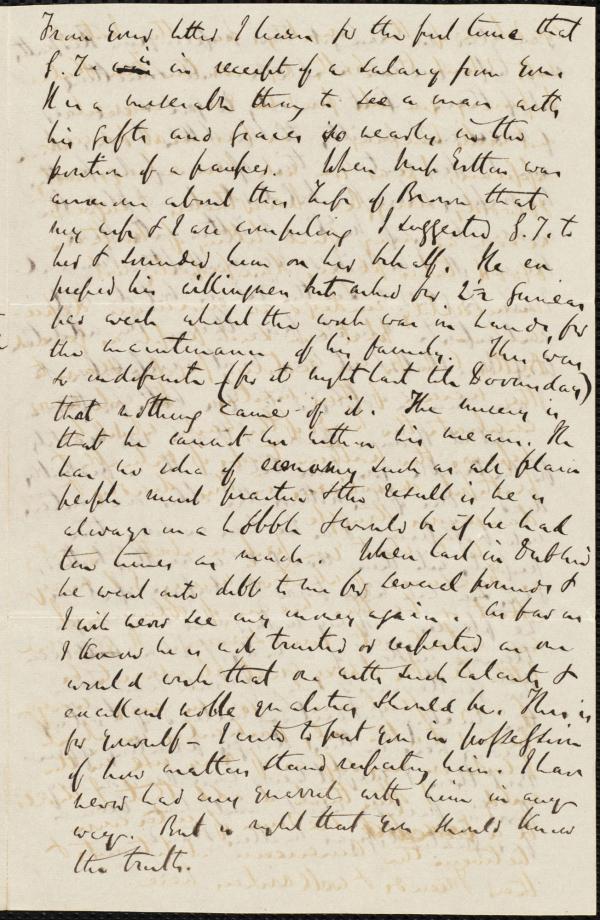 From your letter I learn for the first time that
G. T. is in receipt of a salary from you.
It is a miserable thing to see a man with
his gifts and graces so nearly in the
position of a pauper. When Miss Estlin was
anxious about this Life of Brown that
my wife & I are compiling I suggested G. T. to
her & sounded him on her behalf. He ex
pressed his willingness but asked for 2½ Guineas
per week whilst the work was in hands, for
the maintenance of his family. This was
so indefinite (for it might last till Doomsday)
that nothing came of it. The misery is
that he cannot live within his means. He
has no idea of economy such as all plain
people must practise & the result is he is
always in a hobble & would be if he had
ten times as much. When last in Dublin
he went into debt to me for several pounds &
I will never see my money again. As far as
I know he is not trusted or respected as one
would wish that one with such talents &
excellent noble qualities should be. This is
for yourself - I write to put you in possession
of how matters stand respecting him. I have
never had any quarrel with him in any
way. But is right that you should know
the truth.